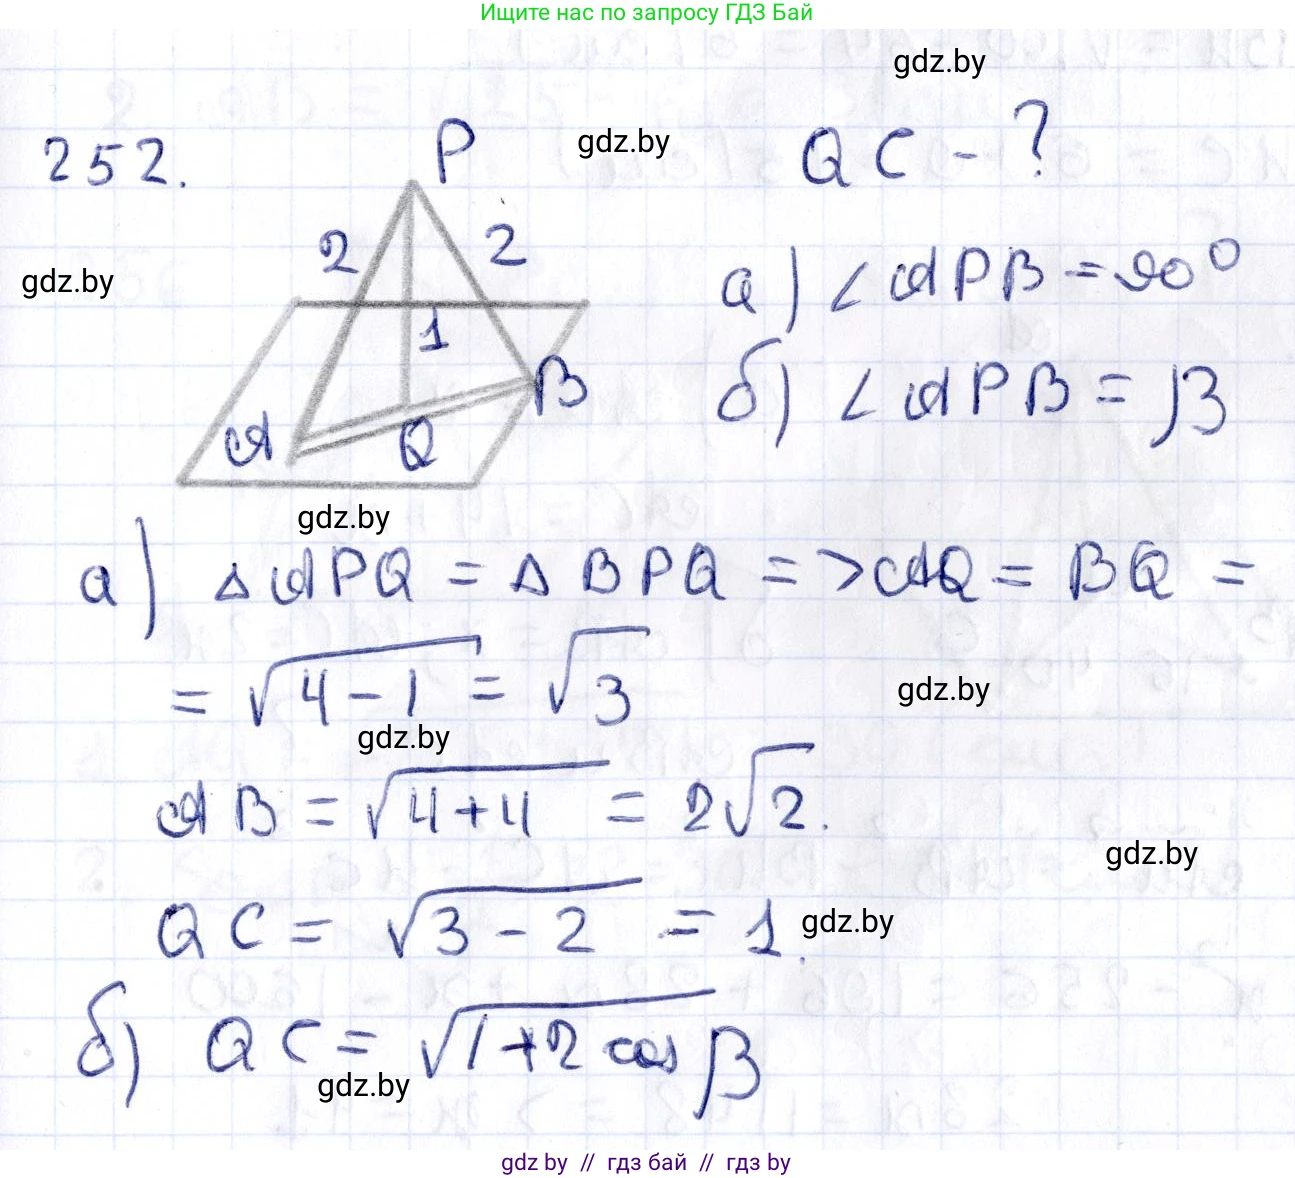 Ищите нас по запросу ГДЗ Бай
gdz.by
252.
P
gdz.by
QC - ?
2
2
gdz.by
а) ∠APB = 90°
1
б) ∠APB = β
B
A
Q
gdz.by
а) △APQ = △BPQ => AQ = BQ =
= √(4-1) = √3
gdz.by
gdz.by
AB = √(4+4) = 2√2.
gdz.by
QC = √(3-2) = 1.
gdz.by
б) QC = √(1+2cosβ)
gdz.by
gdz by // гдз бай // гдз by